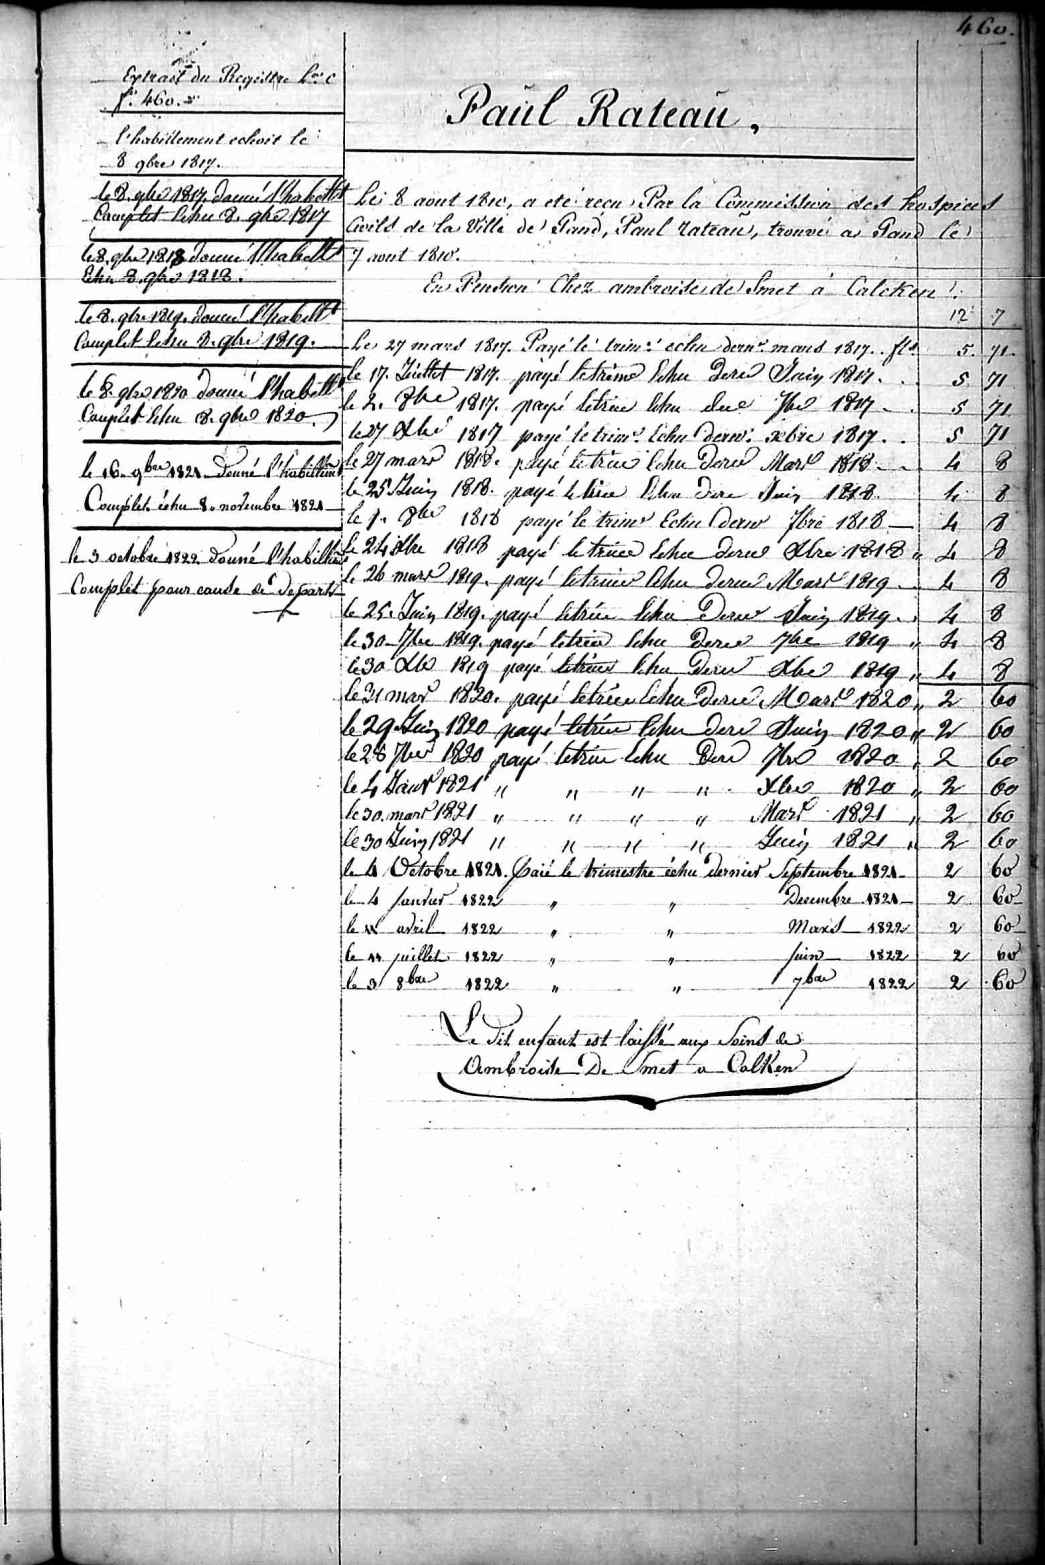 460.
Extrait du Registre L.ra C
f.° 460.
l'habillement echoit le
8 9bre 1817.
le 8. 9bre 1817. donné l'habillt
Complet Echu 8. 9bre 1817
le 8. 9bre 1818 donné l'habillt
Echu 8. 9bre 1818.
le 8. 9bre 1819. donné l'habillt
Complet Echu 8. 9bre 1819.
le 8. 9bre 1820 donné l'habillt
Complet Echu 8. 9bre 1820.
le 16. 9bre 1821 Donné l'habillem
Complet échu 8. novembre 1821
le 3 octobre 1822 Donné l'habillem
Complet pour cause de départ
Paul Rateau.
Le 8 aout 1810, a eté recu Par la Commission des hospices
Civils de la Ville de Gand, Paul rateau, trouvé a Gand le
7 aout 1810.
En Pension Chez ambroise de Smet à Calcken.
12 7
Le 27 mars 1817. Payé le trim.e echu dern.r mars 1817. fls 5. 71.
le 17. Juillet 1817. payé letrime Echu dere Juin 1817. 5 71
le 2. 8bre 1817. payé letrim Echu der 7bre 1817 5 71
le 27 Xbre 1817 payé le trim.e Echu dern.r xbre 1817. 5 71
le 27 mars 1818. payé letrim Echu Derer Mars 1818. 4 8
le 25 Juin 1818. payé le trim Echu dere Juin 1818. 4 8
le 1. 8bre 1818 payé le trim.e Echu derer 7bre 1818 4 8
le 24 Xbre 1818 payé le trim Echu derer Xbre 1818 " 4 8
le 26 mars 1819. payé letrim Echu derer Mars 1819 4 8
le 25. Juin 1819. payé letrim Echu Derer Juin 1819. 4 8
le 30. 7bre 1819. payé letrim Echu Derer 7bre 1819 " 4 8
le 30 Xbre 1819 payé letrim Echu Derer Xbre 1819 " 4 8
le 31 mars 1820. payé letrim Echu Derer Mars 1820 " 2 60
le 29. Juin 1820 payé letrim Echu dere Juin 1820 " 2 60
le 28 7bre 1820 payé letrim Echu Dere 7bre 1820 " 2 60
le 4 Janvr 1821 " " " " Xbre 1820 " 2 60
le 30. mars 1821 " " " " Mars 1821 " 2 60
le 30 Juin 1821 " " " " Juin 1821 " 2 60
le 4 Octobre 1821. Paié le trimestre échu dernier Septembre 1821 2 60
le 4 janvier 1822 " " Decembre 1821 2 60
le avril 1822 " " Mars 1822 2 60
le 11 juillet 1822 " " juin 1822 2 60
le 3 8bre 1822 " " 7bre 1822 2 60
Le dit enfant est laissé aux Soins de
Ambroise De Smet a Calken